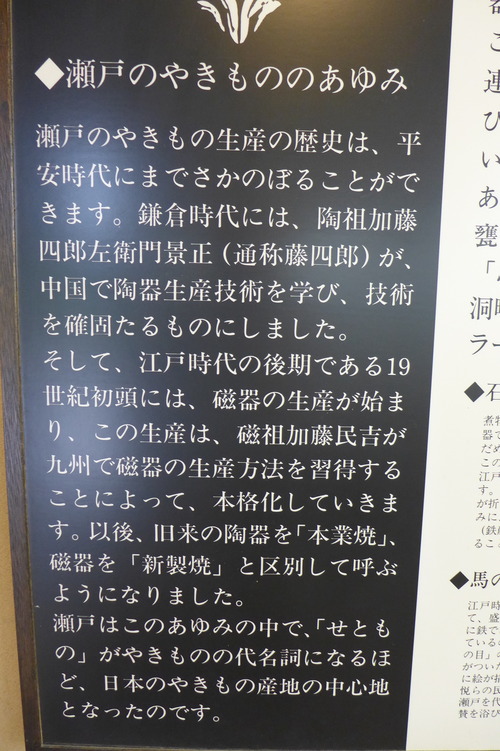 ◆瀬戸のやきもののあゆみ
瀬戸のやきもの生産の歴史は、平
安時代にまでさかのぼることがで
きます。鎌倉時代には、陶祖加藤
四郎左衛門景正（通称藤四郎）が、
中国で陶器生産技術を学び、技術
を確固たるものにしました。
そして、江戸時代の後期である19
世紀初頭には、磁器の生産が始ま
り、この生産は、磁祖加藤民吉が
九州で磁器の生産方法を習得する
ことによって、本格化していきま
す。以後、旧来の陶器を「本業焼」、
磁器を「新製焼」と区別して呼ぶ
ようになりました。
瀬戸はこのあゆみの中で、「せとも
の」がやきものの代名詞になるほ
ど、日本のやきもの産地の中心地
となったのです。
こ
連
び
い
あ
甕
洞
ラー
◆石
煮
器で
だめ
この
江戸
す。
が折
みに
（鉄
るこ
◆馬の
江戸時
て、盛
に鉄で
ている
の目」の
がつい
に絵が描
悦らの民
瀬戸を代
賛を浴び